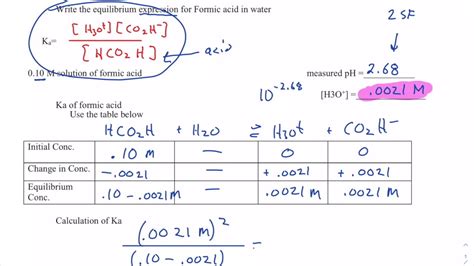 Write the equilibrium expression for Formic acid in water
2 SF
Ka= [H3O+][CO2H-]
[HCO2H] acid
0.10 M solution of formic acid measured pH = 2.68
10^-2.68 [H3O+] = .0021 M
Ka of formic acid
Use the table below
HCO2H + H2O ⇌ H3O+ + CO2H-
Initial Conc. .10 M — 0 0
Change in Conc. -.0021 — +.0021 +.0021
Equilibrium Conc. .10 - .0021 M — .0021 M .0021 M
Calculation of Ka
(.0021 M)^2 =
(.10 - .0021)